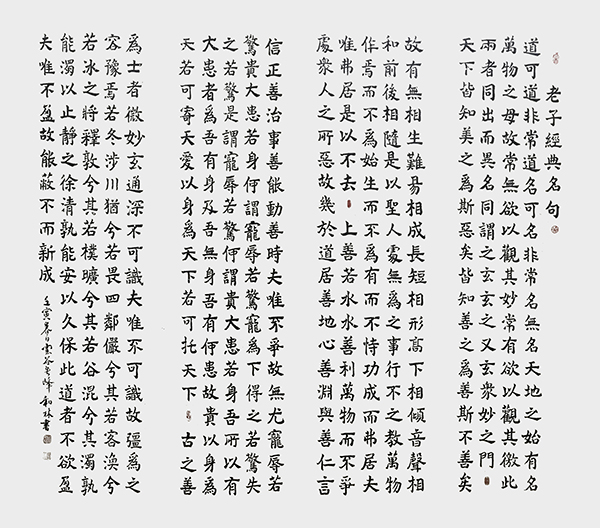 老子經典名句
道可道非常道名可名非常名無名天地之始有名
萬物之母故常無欲以觀其妙常有欲以觀其徼此
兩者同出而異名同謂之玄玄之又玄衆妙之門
天下皆知美之爲斯惡矣皆知善之爲善斯不善矣
故有無相生難易相成長短相形高下相傾音聲相
和前後相隨是以聖人處無爲之事行不之教萬物
作焉而不爲始生而不爲有而不恃功成而弗居夫
唯弗居是以不去 上善若水水善利萬物而不爭
處衆人之所惡故幾於道居善地心善淵與善仁言
信正善治事善能動善時夫唯不爭故無尤寵辱若
驚貴大患若身何謂寵辱若驚寵爲下得之若驚失
之若驚是謂寵辱若驚何謂貴大患若身吾所以有
大患者爲吾有身及吾無身吾有何患故貴以身爲
天若可寄天愛以身爲天下若可托天下 古之善
爲士者微妙玄通深不可識夫唯不可識故彊爲之
容豫焉若冬涉川猶兮若畏四鄰儼兮其若客渙兮
若冰之將釋敦兮其若樸曠兮其若谷混兮其濁孰
能濁以止靜之徐清孰能安以久保此道者不欲盈
夫唯不盈故能蔽不而新成
壬寅 和林書